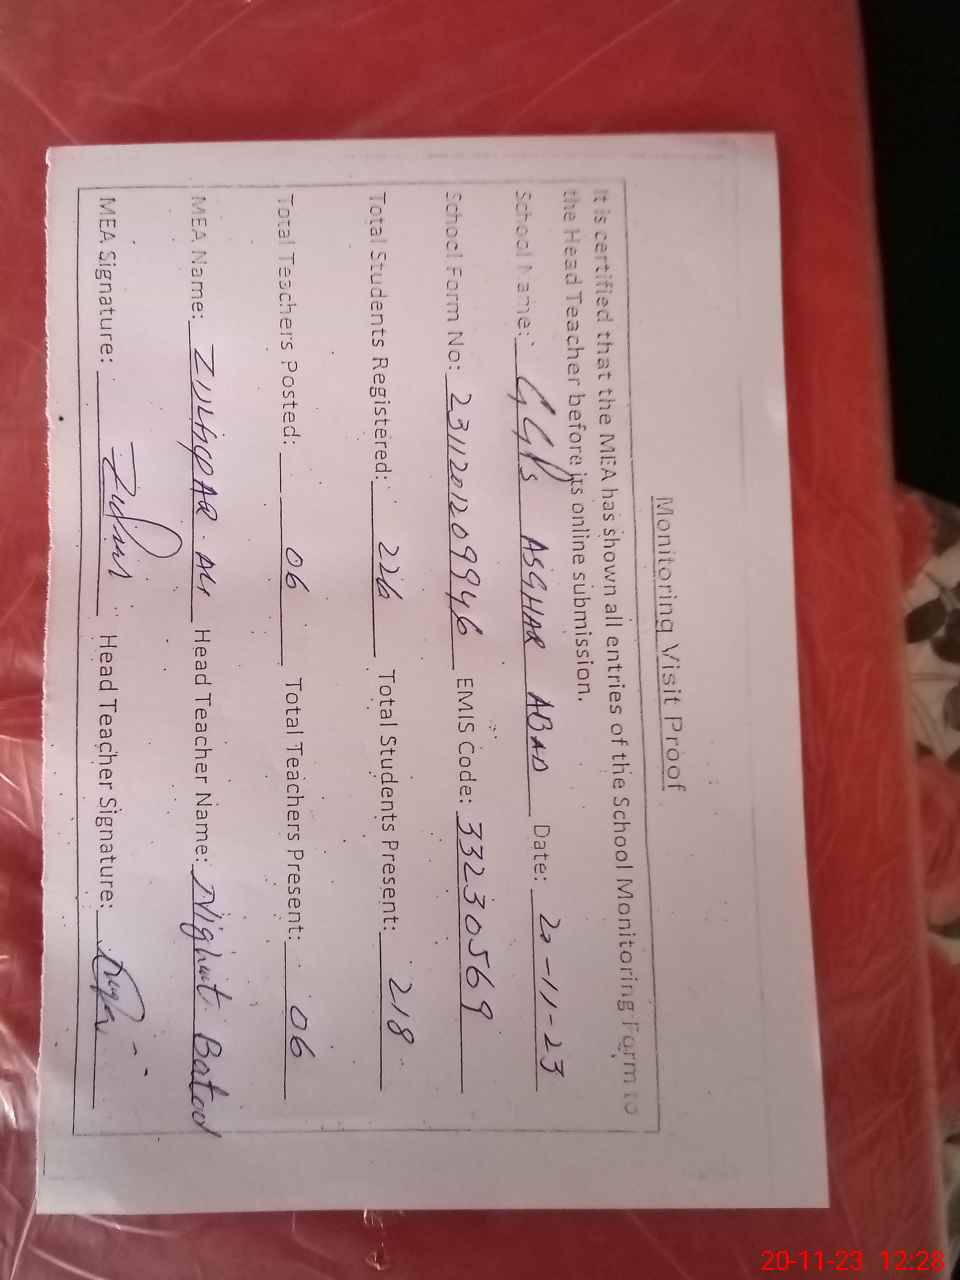 Monitoring Visit Proof
It is certified that the MEA has shown all entries of the School Monitoring Form to
the Head Teacher before its online submission.
School Name: GGPS ASGHAR ABAD Date: 20-11-23
School Form No: 23112012099946 EMIS Code: 33230569
Total Students Registered: 226 Total Students Present: 218
Total Teachers Posted: 06 Total Teachers Present: 06
MEA Name: ZULFIQAR ALI Head Teacher Name: Nighat Batool
MEA Signature: Head Teacher Signature:
20-11-23 12:28